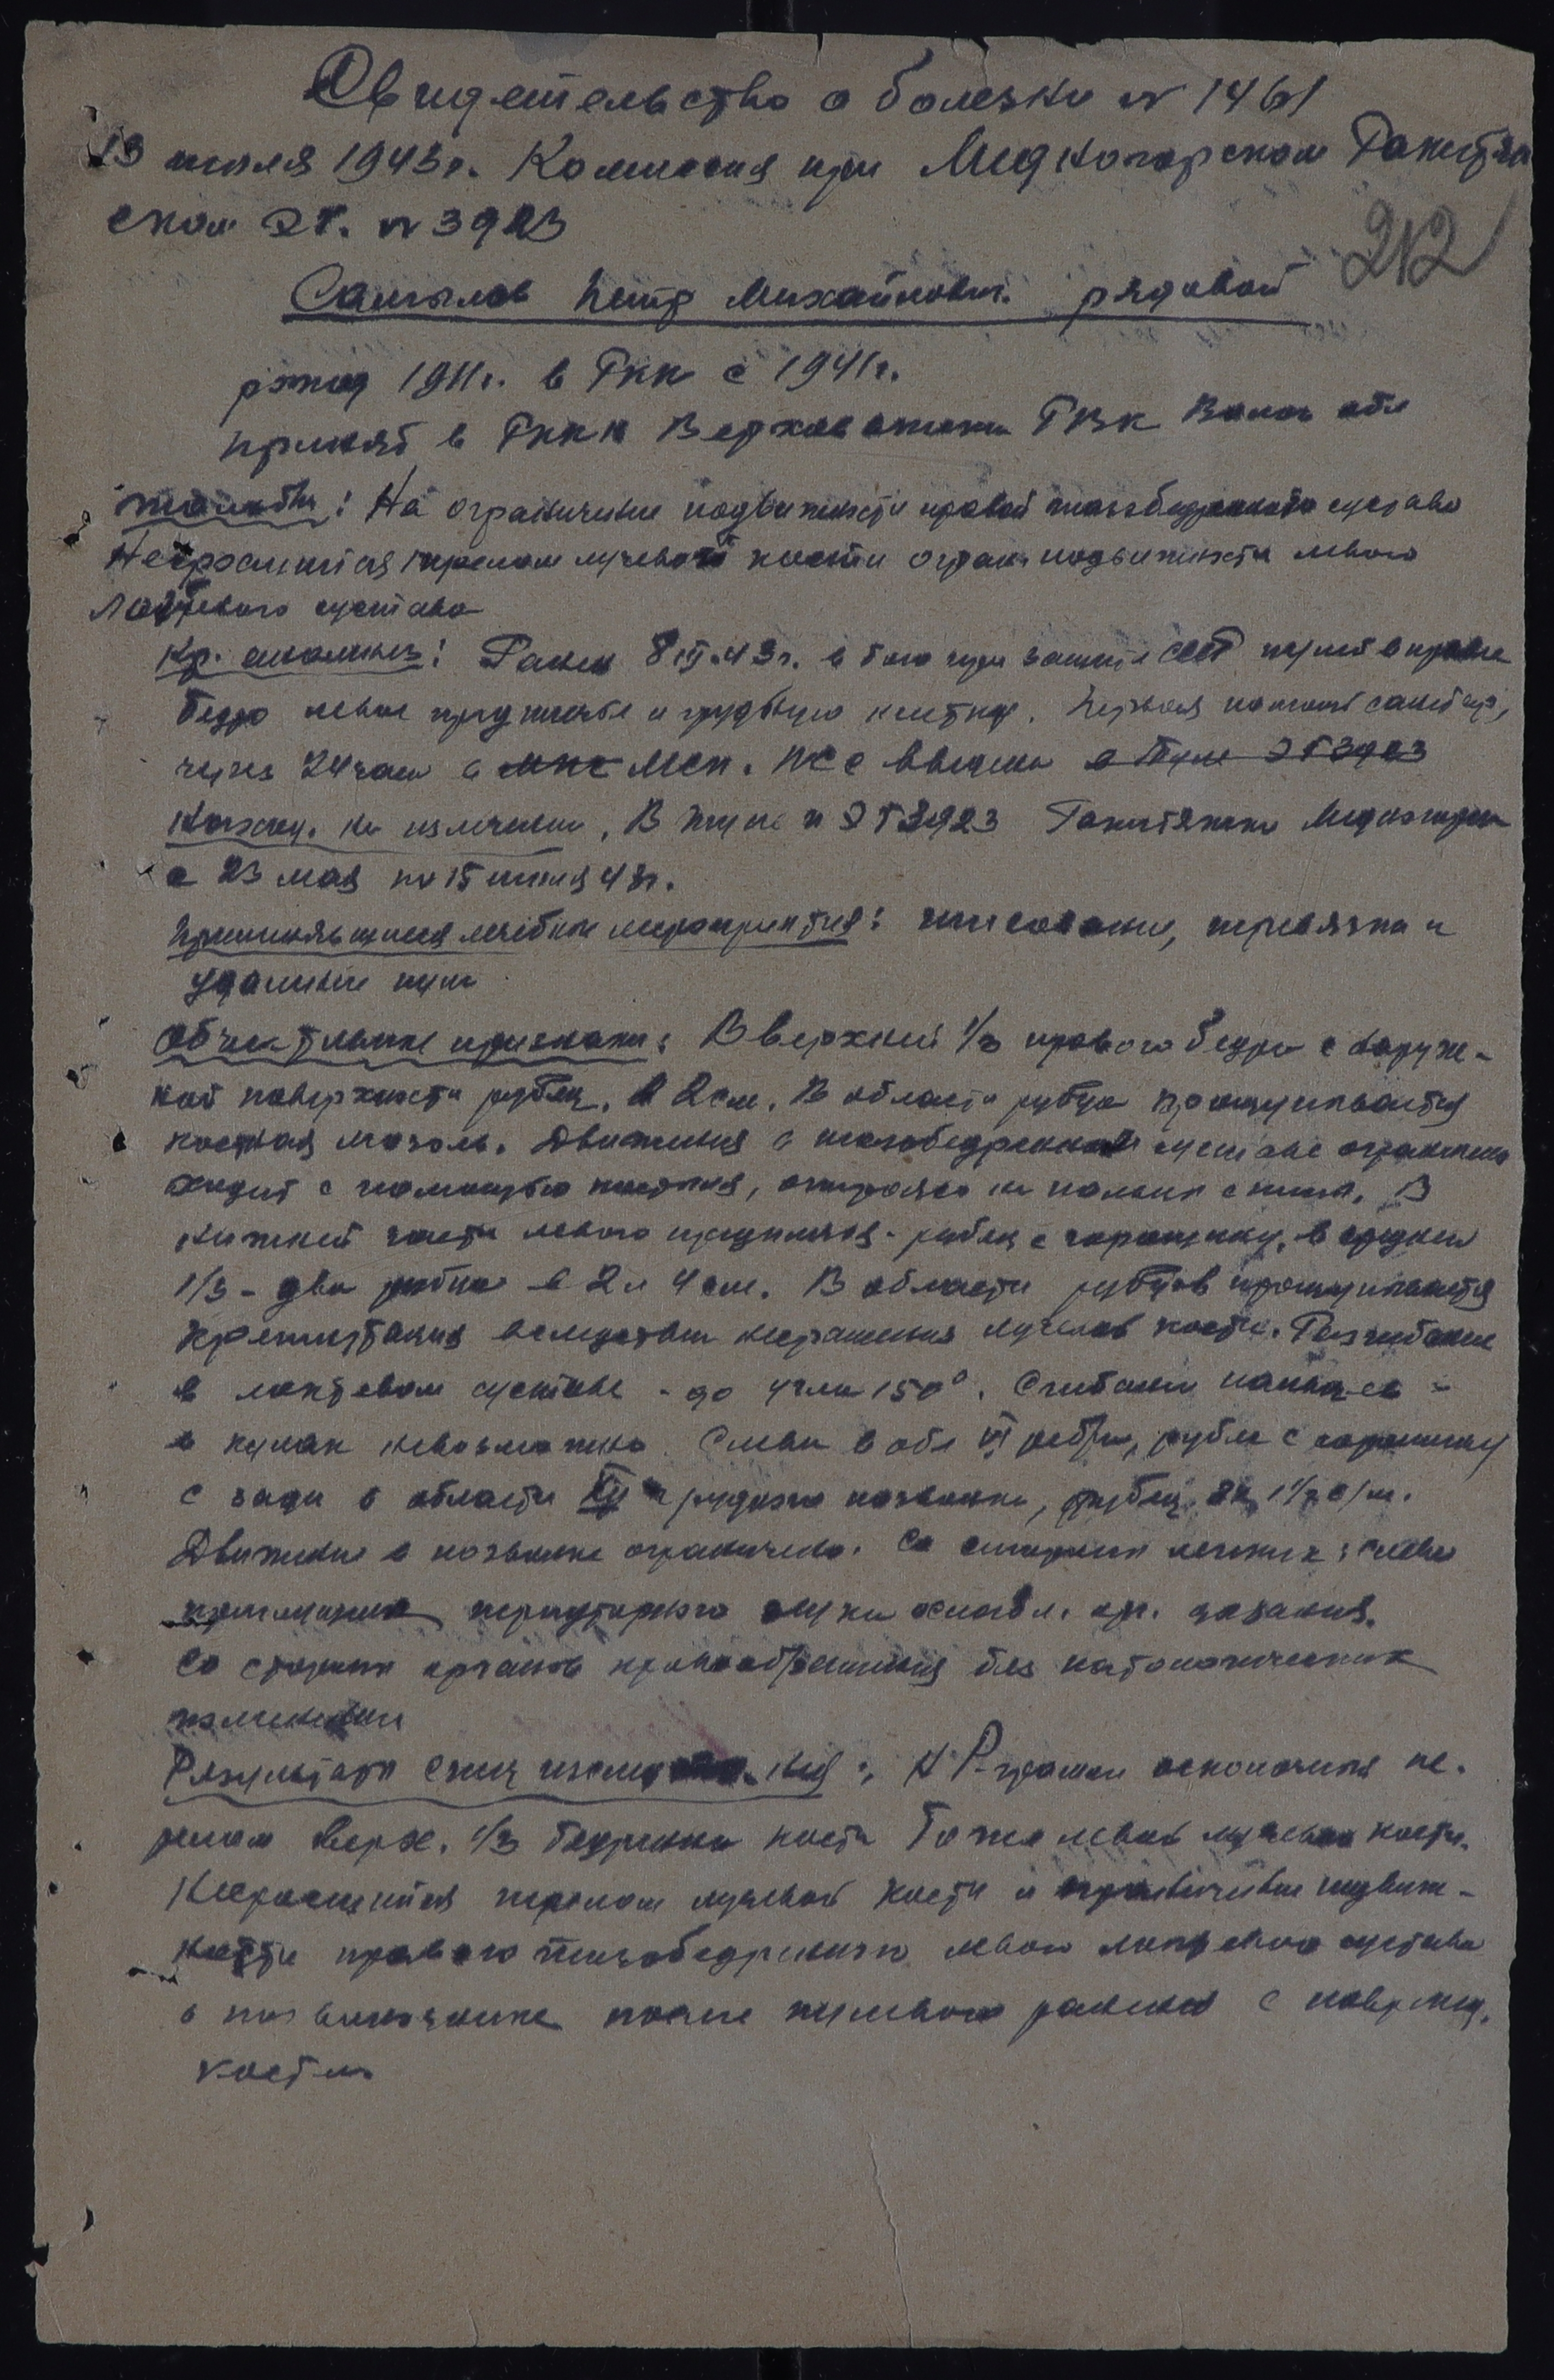 Свидетельство о болезни № 1461
13 июля 1943 г. Комиссия при Медногорском Ракитян
ском ЭГ. № 3923
212
Самылов Петр Михайлович. рядовой
рожд 1911 г. в РКК с 1941 г.
призват в РККА Верховажским РВК Волог обл
Жалобы: На ограничение подвижности правой тазобедренного сустава
Несросшийся перелом лучевой кости огран. подвижности левого
локтевого сустава
Кр. анамнез: Ранен 8 III. 43 г. в бою при защите СССР пулей в правое
бедро левое предплечье и грудную клетку. Первая помощь санитар,
через 24 часа в МСП. в ЭГ 3923
на излечении. В ЭГ 3923 Ракитянка Медногорск
с 23 мая по 15 июля 43 г.
Применявшиеся лечебные мероприятия: гипсование, перевязка и
удаление пули
Объективные признаки: В верхней 1/3 правого бедра с наруж-
ной поверхности рубец. в 2 см. В области рубца прощупывается
костная мозоль. Движения в тазобедренном суставе ограничено
ходит с помощью костыля, опираясь на пальцы стопы. В
нижней части левого предплечья - рубец с горошину, в средней
1/3 - два рубца в 2 и 4 см. В области рубцов прощупывается
крепитация вследствии несращения лучевой кости. Разгибание
в локтевом суставе - до угла 150°. Сгибание пальцев -
в кулак невозможно. Слева в обл VI ребра, рубец с горошину
с зади в области XII грудного позвонка, рубец 2 на 1 1/2 с/м.
Движение в позвонке ограничено. Со стороны легких: слева
перкуторного звука ослабл. дыхания.
Со стороны органов кровообращения без патологических
изменений
Результаты спец исследования: На Р-грамме осколочный пе-
релом верх. 1/3 бедренной кости Тоже левой лучевой кости.
Несросшийся перелом лучевой кости и ограничение подвиж-
ности правого тазобедренного левого локтевого сустава
в позвоночнике после пулевого ранения с поврежд.
кости